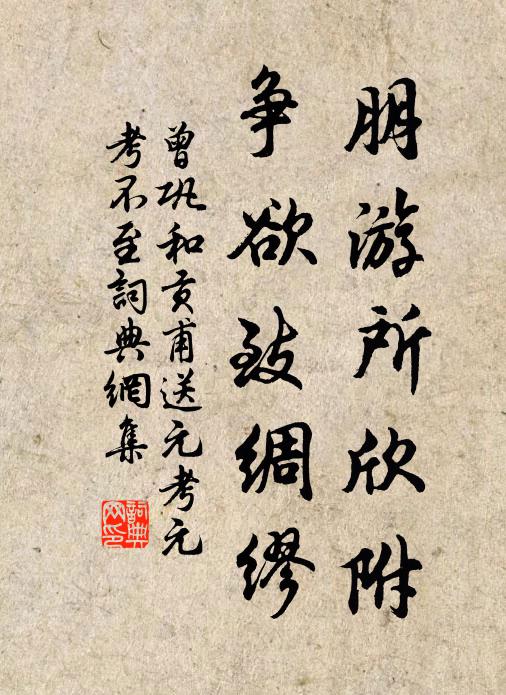 朋游所欣附
争欲致綢繆
曾巩和贡甫送元考元
考不至詞典網集
詞典
网印